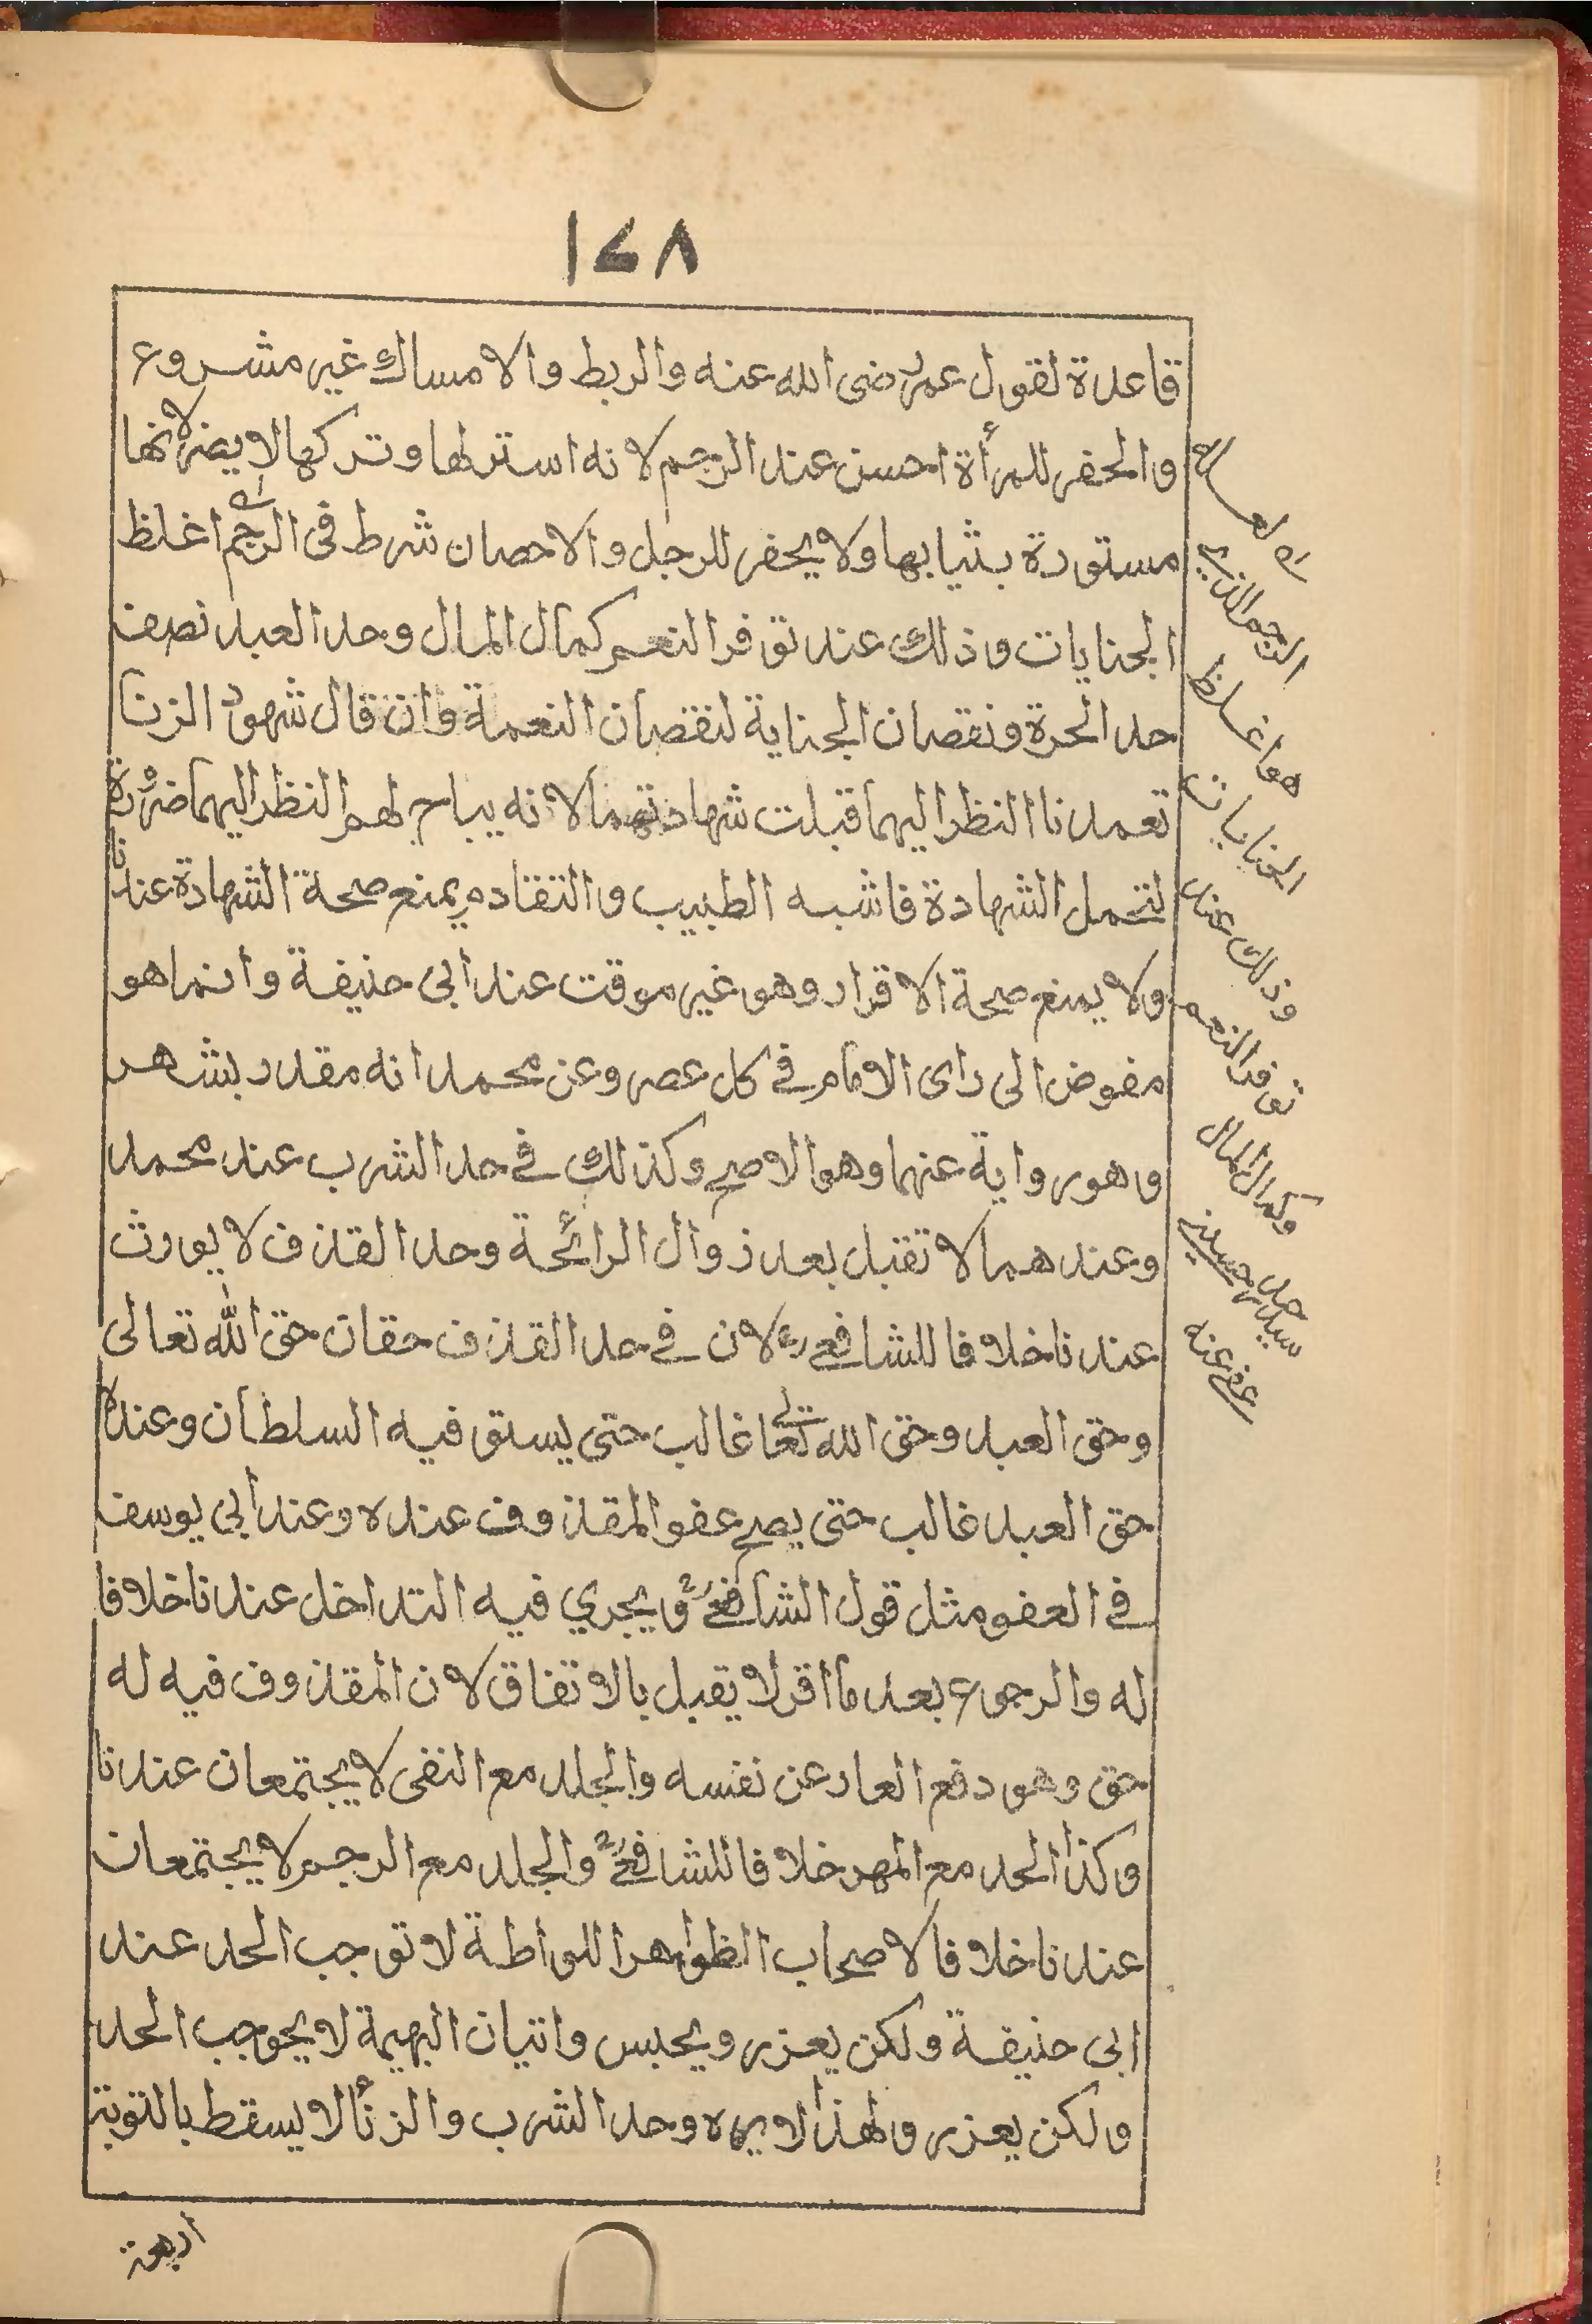 ١٤٨
قاعدة لقول عمر رضى الله عنه والربط والامساك غير مشروع
والحفر للمرأة احسن عند الرجم لانه استر لها وتركها لا يضر لانها
مستورة بثيابها ولا يحفر للرجل والاحصان شرط فى الرجم اغلظ
الجنايات وذلك عند توفر النعم كمال المال وحد العبد نصف
حد الحرة ونقصان الجناية لنقصان النعمة وان قال شهود الزنا
تعمدنا النظر اليهما قبلت شهادتهما لانه يباح لهم النظر اليهما ضرورة
لتحمل الشهادة فاشبه الطبيب والتقادم يمنع صحة الشهادة عندنا
ولا يمنع صحة الاقرار وهو غير موقت عند أبى حنيفة وانما هو
مفوض الى راى الامام في كل عصر وعن محمد انه مقدر بشهر
وهو رواية عنهما وهو الاصح وكذلك في حد الشرب عند محمد
وعندهما لا تقبل بعد زوال الرائحة وحد القذف لا يورث
عندنا خلافا للشافعي رح لان في حد القذف حقان حق الله تعالى
وحق العبد وحق الله تعالى غالب حتى يستوفيه السلطان وعنده
حق العبد غالب حتى يصح عفو المقذوف عنده وعند أبي يوسف
في العفو مثل قول الشافعي رح ويجري فيه التداخل عندنا خلافا
له والرجوع بعد ما اقر لا يقبل بالاتفاق لان المقذوف فيه له
حق وهو دفع العار عن نفسه والجلد مع النفى لا يجتمعان عندنا
وكذا الحد مع المهر خلافا للشافعي رح والجلد مع الرجم لا يجتمعان
عندنا خلافا لاصحاب الظواهر اللواطة لا توجب الحد عند
ابى حنيفة ولكن يعزر ويحبس واتيان البهيمة لا يحوجب الحد
ولكن يعزر ولهذا لا يره وحد الشرب والزنأ لا يسقط بالتوبة
أربعة
الرجم الذي
هو اغلظ
الجنايات
وذلك عند
توفر النعم
وكمال المال
سيد حسين
عفي عنه